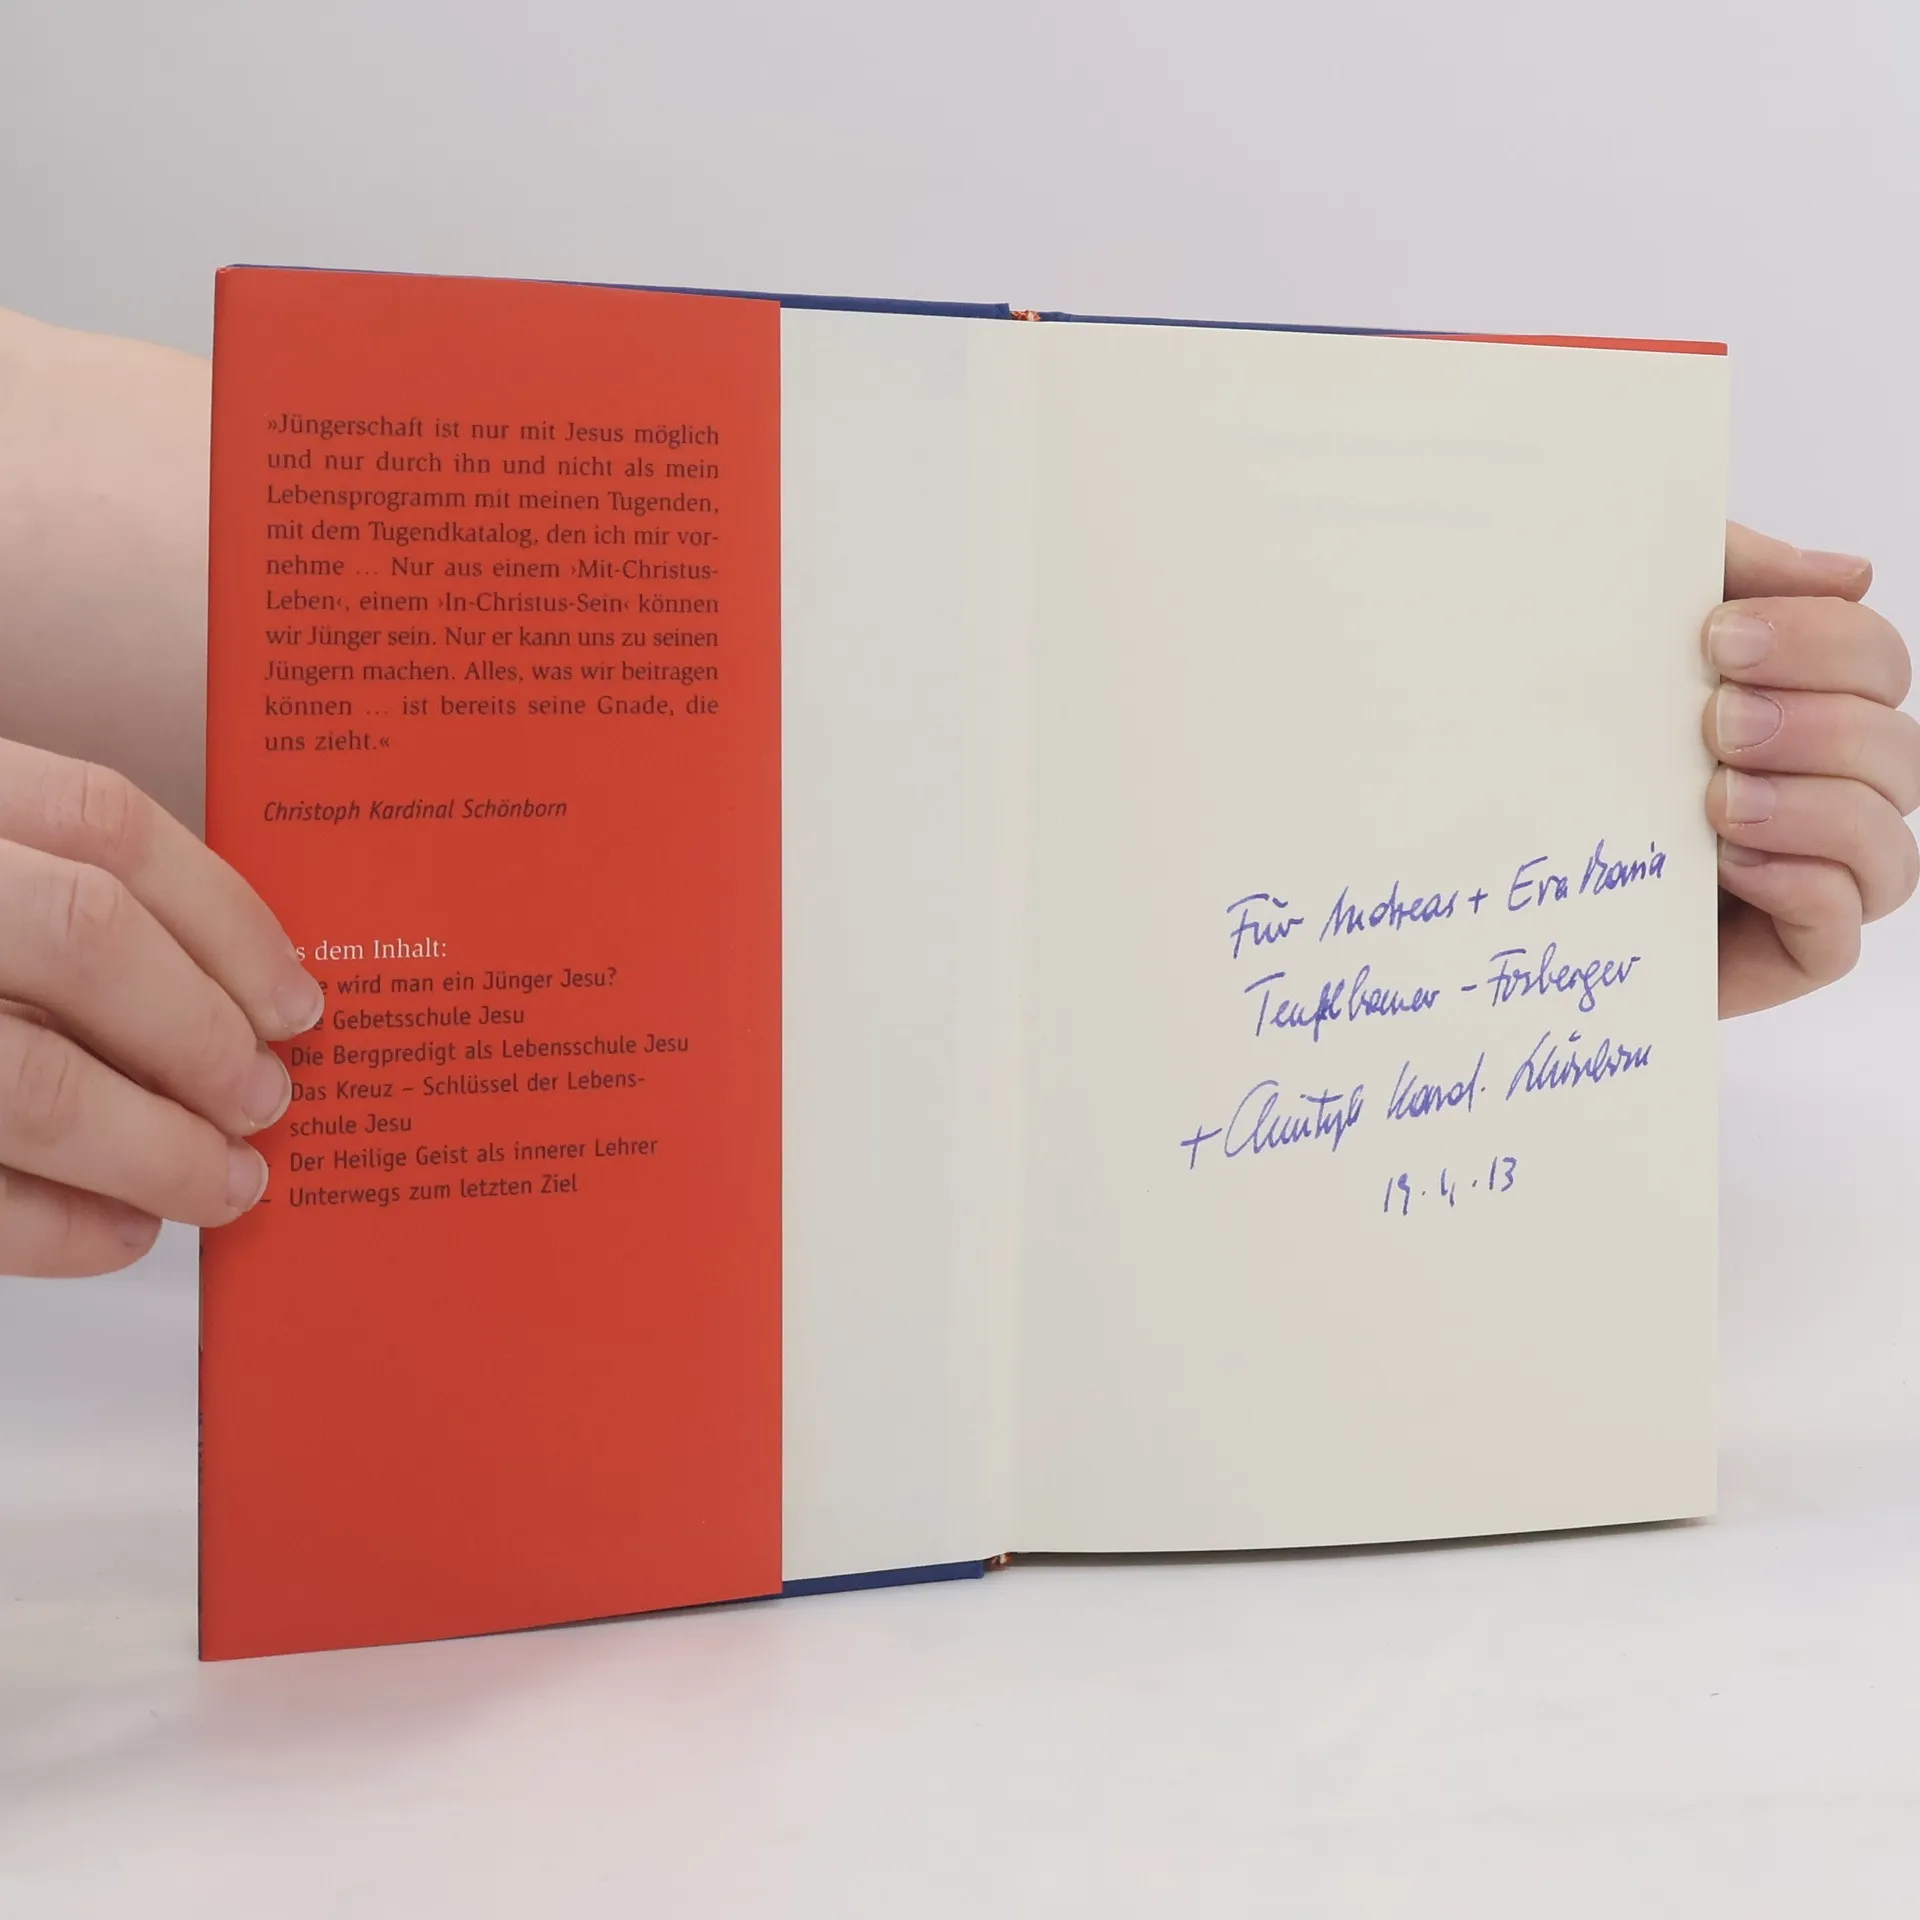 »Jüngerschaft ist nur mit Jesus möglich
und nur durch ihn und nicht als mein
Lebensprogramm mit meinen Tugenden,
mit dem Tugendkatalog, den ich mir vor-
nehme ... Nur aus einem ›Mit-Christus-
Leben‹, einem ›In-Christus-Sein‹ können
wir Jünger sein. Nur er kann uns zu seinen
Jüngern machen. Alles, was wir beitragen
können ... ist bereits seine Gnade, die
uns zieht.«
Christoph Kardinal Schönborn
s dem Inhalt:
e wird man ein Jünger Jesu?
e Gebetsschule Jesu
Die Bergpredigt als Lebensschule Jesu
Das Kreuz – Schlüssel der Lebens-
schule Jesu
Der Heilige Geist als innerer Lehrer
– Unterwegs zum letzten Ziel
Für Andreas + Eva Maria
+ Christoph Kard. Schönborn
19.4.13